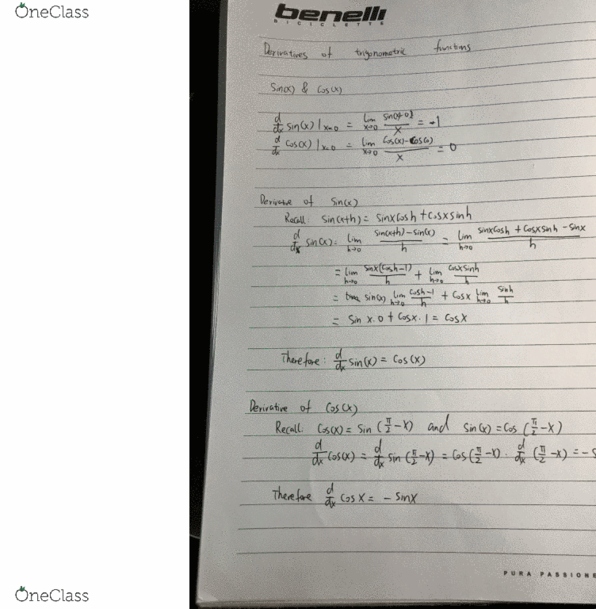 OneClass
benelli
BICICLETTE
Derivatives of trigonometric functions
Sin(x) & Cos(x)
d/dx sin(x)|x=0 = lim x→0 sin(x+0)/x = -1
d/dx cos(x)|x=0 = lim x→0 cos(x)-cos(0)/x = 0
Derivative of Sin(x)
Recall: sin(x+h) = sinxcosh + cosxsinh
d/dx sin(x) = lim h→0 sin(x+h)-sin(x)/h = lim h→0 sinxcosh + cosxsinh - sinx/h
= lim h→0 sinx(cosh-1)/h + lim h→0 cosxsinh/h
= sin(x) lim h→0 cosh-1/h + cosx lim h→0 sinh/h
= sin x·0 + cosx·1 = cosx
Therefore: d/dx sin(x) = cos(x)
Derivative of Cos(x)
Recall: cos(x) = sin(π/2-x) and sin(x) = cos(π/2-x)
d/dx cos(x) = d/dx sin(π/2-x) = cos(π/2-x)· d/dx (π/2-x) = -s
Therefore d/dx cosx = -sinx
PURA PASSIONE
OneClass